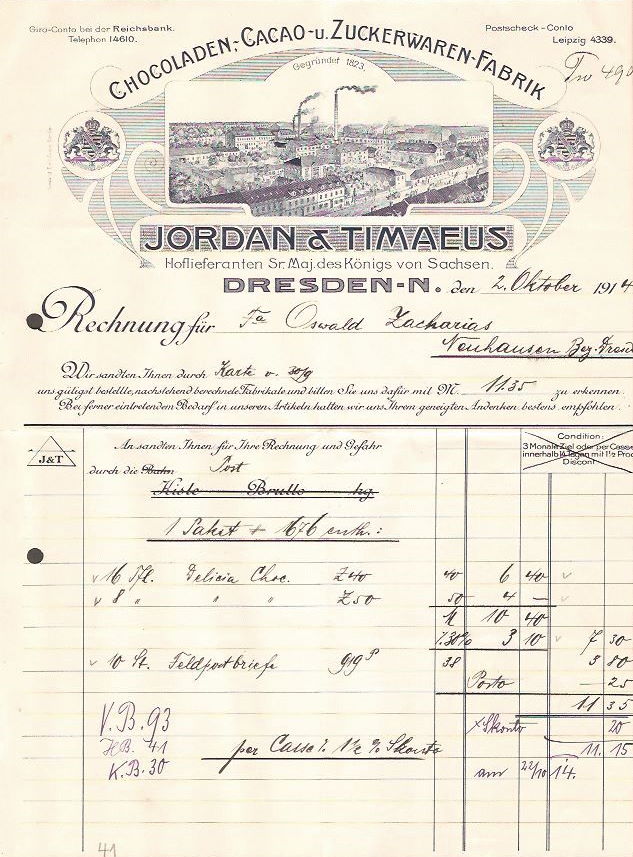 Giro-Conto bei der Reichsbank.
Telephon 14610.
Postscheck-Conto
Leipzig 4339.
CHOCOLADEN-, CACAO- u. ZUCKERWAREN-FABRIK
Gegründet 1823.
JORDAN & TIMAEUS
Hoflieferanten Sr. Maj. des Königs von Sachsen.
DRESDEN-N. den 2. Oktober 1914
Rechnung für Fa Oswald Zacharias
Neuhausen Bez. Dresd
Wir sandten Ihnen durch Karte v. 30/9
uns gütigst bestellte, nachstehend berechnete Fabrikate und bitten Sie uns dafür mit M. 11.35 zu erkennen.
Bei ferner eintretendem Bedarf in unseren Artikeln halten wir uns Ihrem geneigten Andenken bestens empfohlen.
J&T
An sandten Ihnen für Ihre Rechnung und Gefahr
durch die Bahn Post
Kiste Brutto kg.
Condition:
3 Monate Ziel oder per Casse
innerhalb 14 Tagen mit 1½ Proc
Discont
1 Paket 676 enth.:
16 Tfl. Delicia Choc. 40 40 6 40
8 " " " 50 50 4 —
M 10 40
30% 3 10 7 30
10 St. Feldpostbriefe 919 38 3 80
Porto — 25
11 35
V.B. 93
Skonto 20
HB. 41
per Casse 1½ % Skonto
11. 15
K.B. 30
am 22/10 14.
41